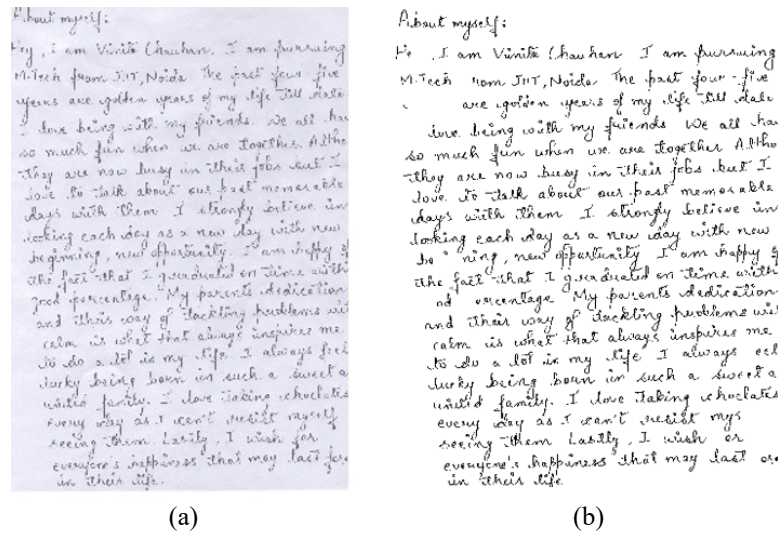 About myself:
Hey, I am Vinita Chauhan. I am pursuing
M.Tech from JIIT, Noida The past four-five
years are golden years of my life till date
I love being with my friends. We all hav
so much fun when we are together. Altho
they are now busy in their jobs but I
love to talk about our past memorable
days with them I strongly believe in
looking each day as a new day with new
beginning, new opportunity. I am happy
the fact that I graduated on time with
good percentage. My parents dedication
and their way of tackling problems wit
calm is what that always inspires me
to do a lot in my life. I always feel
lucky being born in such a sweet a
united family. I love taking choclates
every day as I can't resist myself
seeing them. Lastly, I wish for
everyone's happiness that may last for
in their life.
(a)
About myself:
He , I am Vinita Chauhan I am pursuing
M.Tech rom JIIT, Noida The past four-five
are golden years of my life till date
love being with my friends We all hav
so much fun when we are together Altho
they are now busy in their jobs but I
love to talk about our past memorable
days with them I strongly believe in
looking each day as a new day with new
be ning, new opportunity I am happy
the fact that I graduated on time with
od ercentage My parents dedication
and their way of tackling problems wit
calm is what that always inspires me
to do a lot in my life I always eel
lucky being born in such a sweet a
united family. I love taking choclates
every day as I can't resist mys
seeing them Lastly, I wish or
everyone's happiness that may last or
in their life
(b)